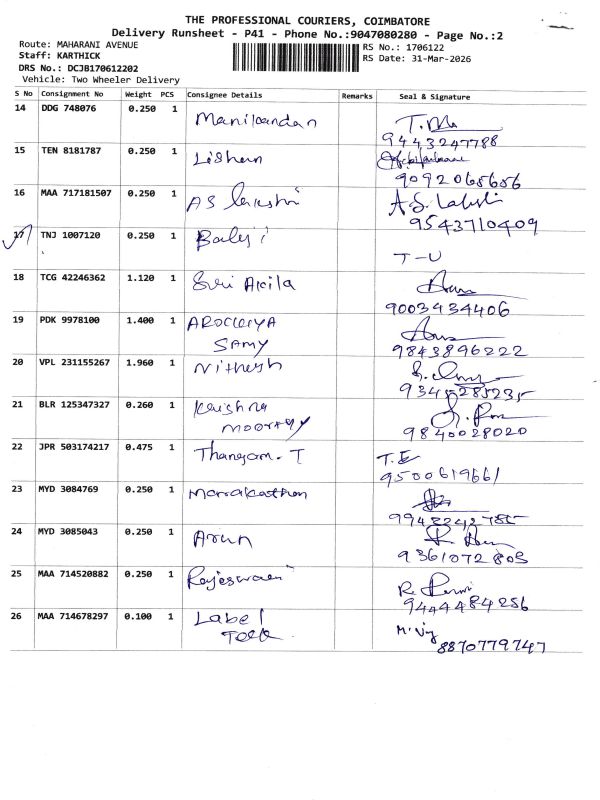 THE PROFESSIONAL COURIERS, COIMBATORE
Delivery Runsheet - P41 - Phone No.:9047080280 - Page No.:2
Route: MAHARANI AVENUE
Staff: KARTHICK
DRS No.: DCJB170612202
Vehicle: Two Wheeler Delivery
RS No.: 1706122
RS Date: 31-Mar-2026
S No Consignment No Weight PCS Consignee Details Remarks Seal & Signature
14 DDG 748076 0.250 1 Manikandan
9443247788
15 TEN 8181787 0.250 1 Lishan
9092065656
16 MAA 717181507 0.250 1 AS lakshi A.S. Lakshi
9543710409
17 TNJ 1007120 0.250 1 Balaji T-U
18 TCG 42246362 1.120 1 Sri Akila
9003434406
19 PDK 9978100 1.400 1 AROCKIYA
SAMY 9843896222
20 VPL 231155267 1.960 1 Nithesh
9345285235
21 BLR 125347327 0.260 1 Krishna
moorthy 9840028020
22 JPR 503174217 0.475 1 Thangam. T T.E
9500619661
23 MYD 3084769 0.250 1
9943242785
24 MYD 3085043 0.250 1 Arun
9361072805
25 MAA 714520882 0.250 1 Rajeswari
9444484256
26 MAA 714678297 0.100 1 Label
Teck 8870779747